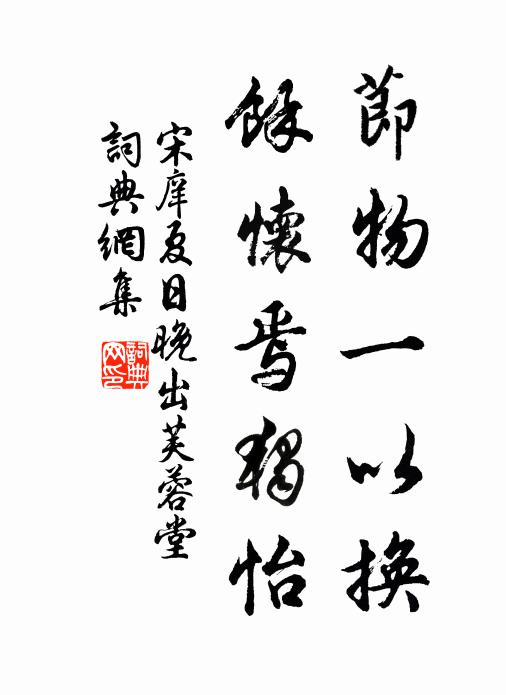 節物一以換
餘懷焉獨怡
宋庠夏日晚出芙蓉堂
詞典網集
詞典網印